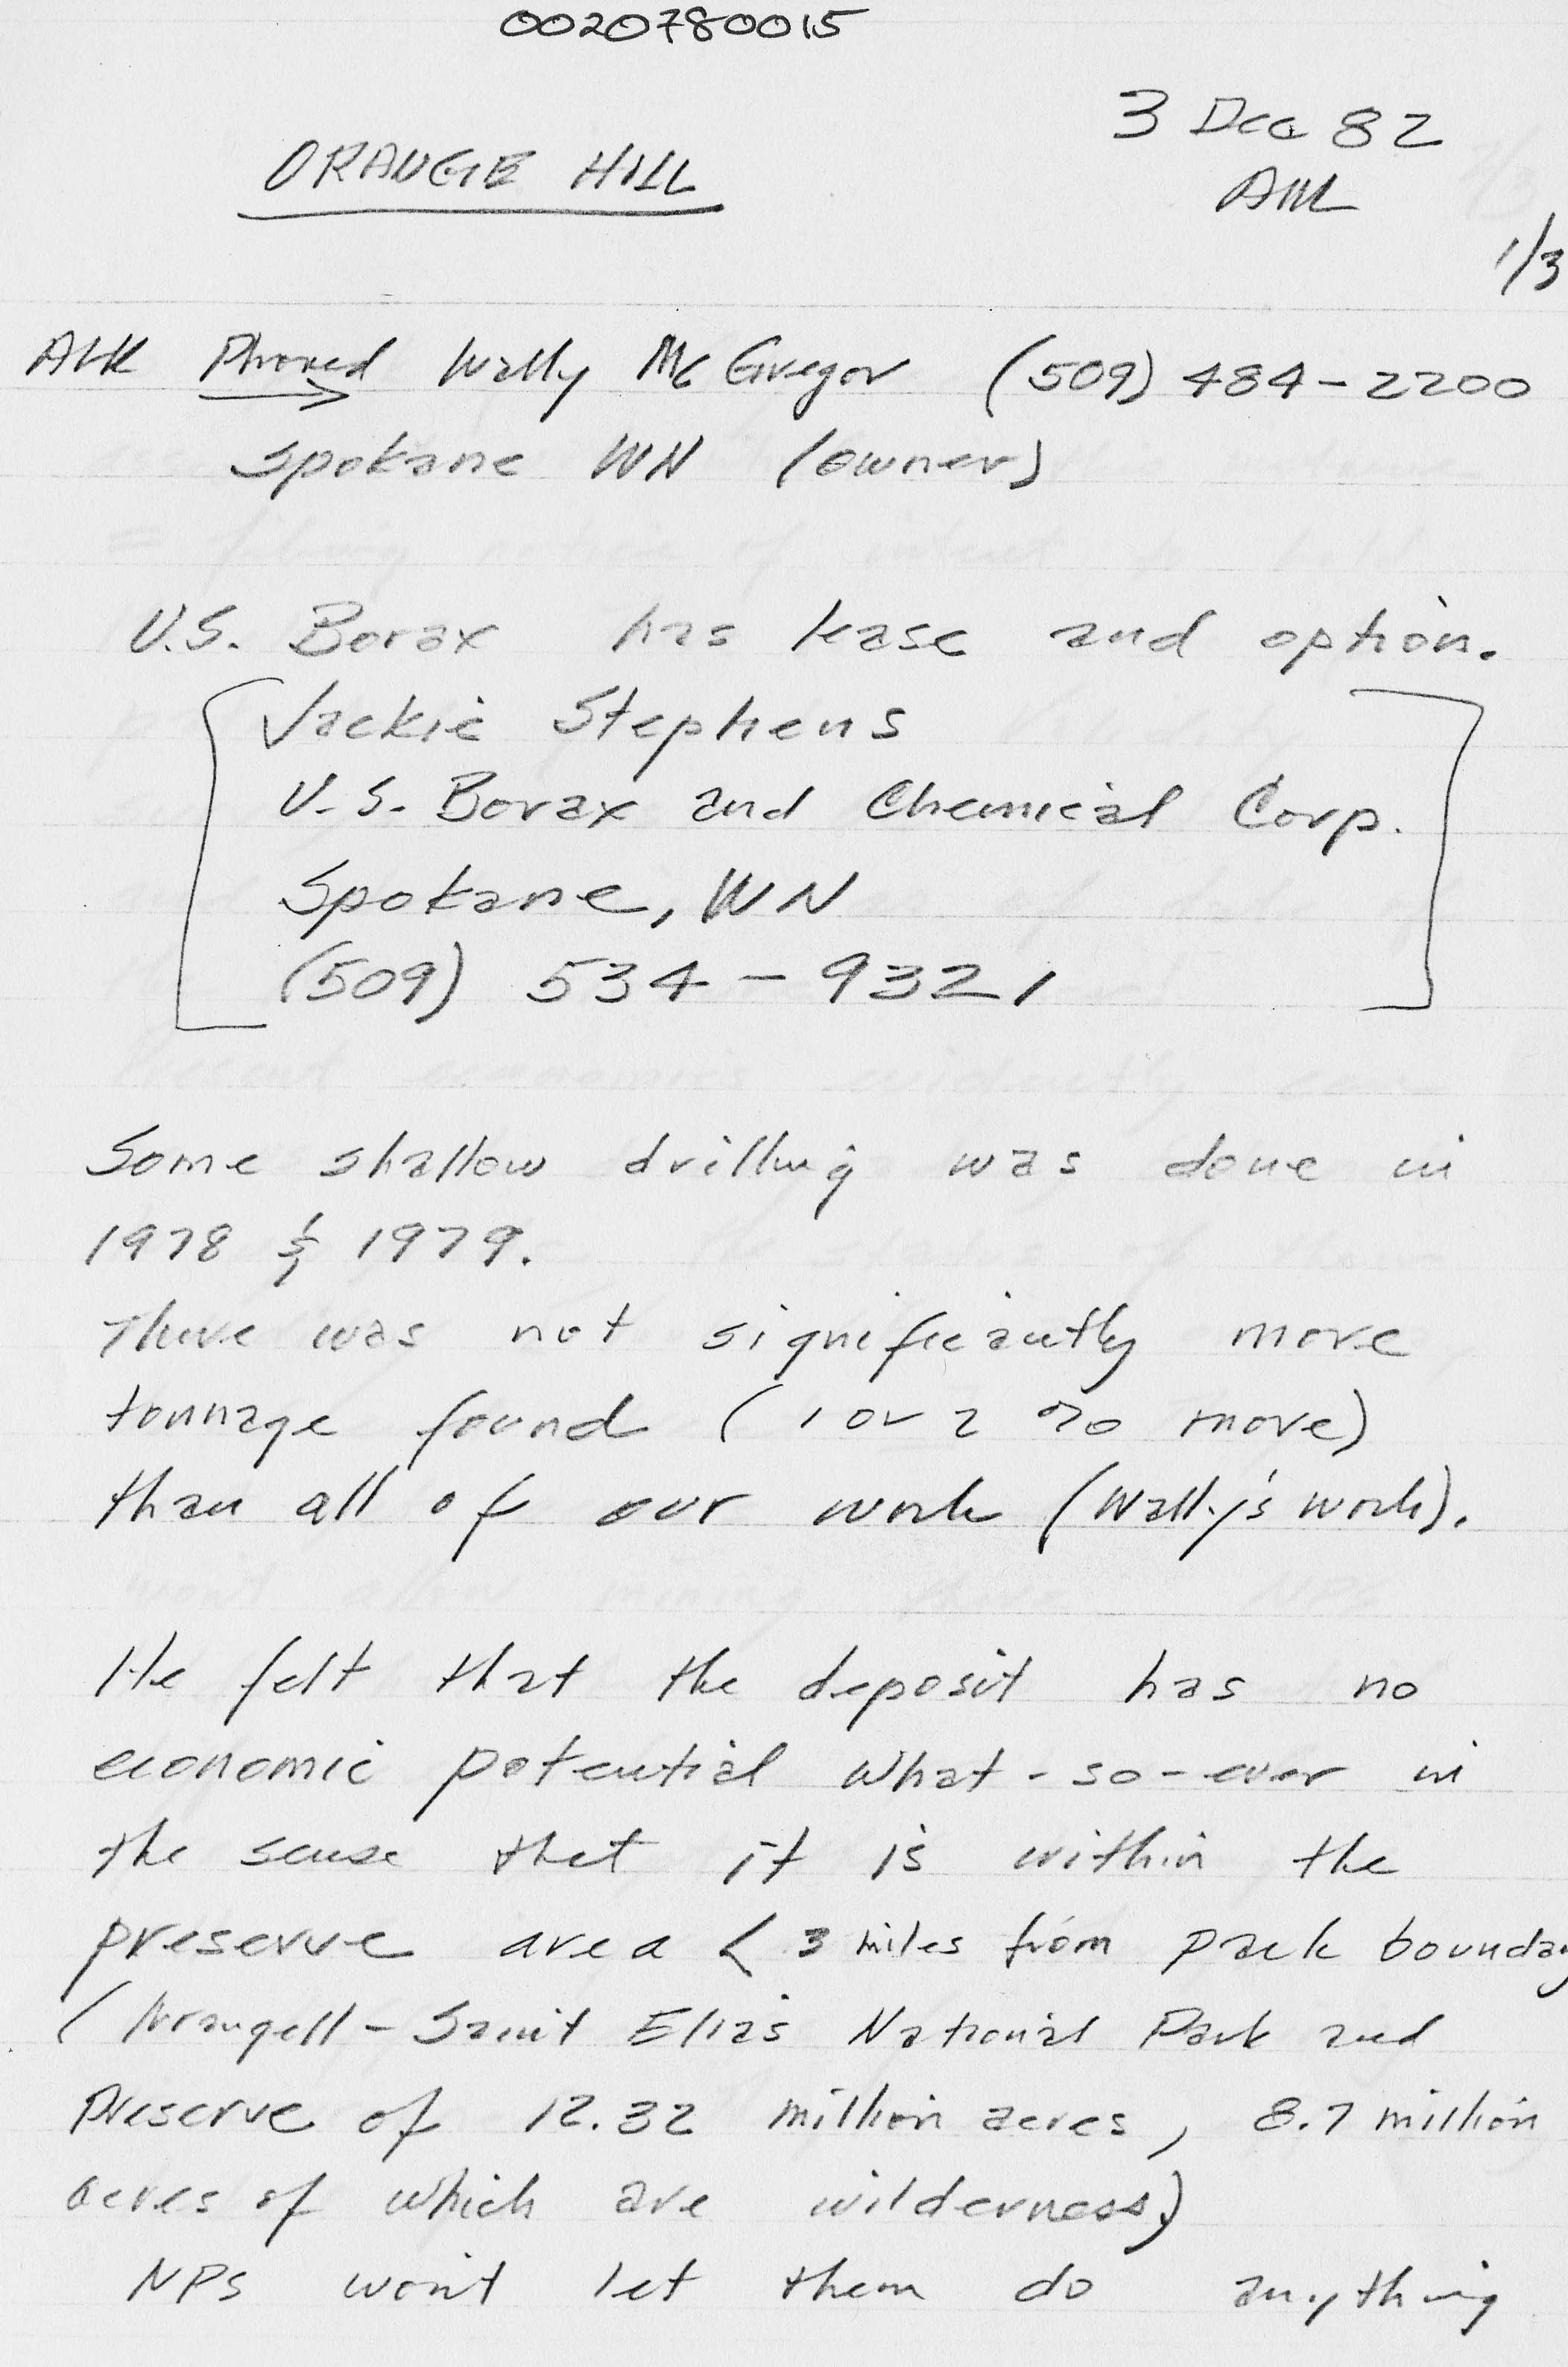 0020780015
3 Dec 82
ORANGE HILL
1/3
Phoned Wally McGregor (509) 484-2200
Spokane WN (owner)
U.S. Borax has lease and option.
Jackie Stephens
U.S. Borax and Chemical Corp.
Spokane, WN
(509) 534-9321
Some shallow drilling was done in
1978 & 1979.
There was not significantly more
tonnage found (1 or 2 % more)
than all of our work (Wally's work).
He felt that the deposit has no
economic potential what-so-ever in
the sense that it is within the
preserve area < 3 miles from park boundary
(Wrangell-Saint Elias National Park and
Preserve of 12.32 million acres, 8.7 million
acres of which are wilderness)
NPS won't let them do anything